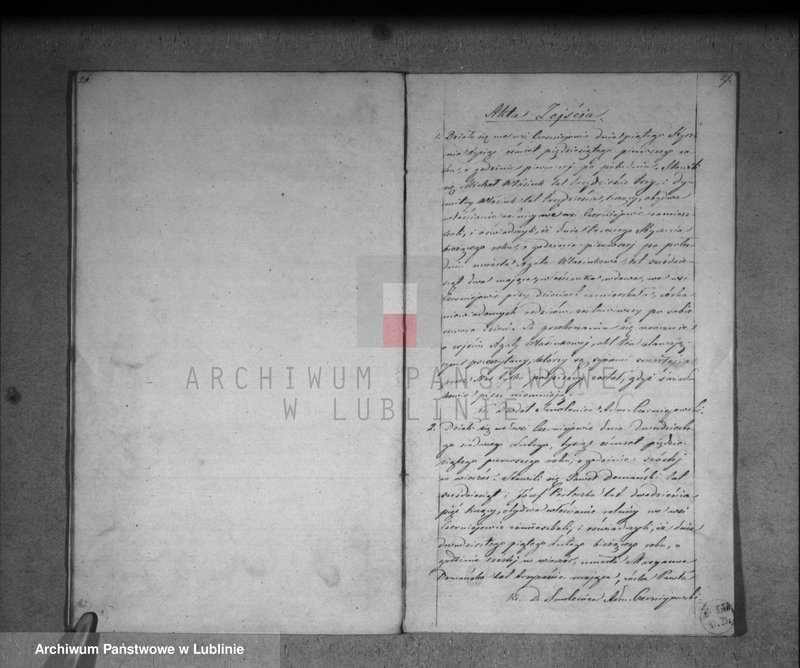 26.
27.
Akta Zejścia.
1. Działo się we wsi Czerniejowie dnia piątego Stycz-
nia tysiąc ośmset pięćdziesiątego pierwszego ro-
ku, o godzinie pierwszej po południu. Stawili
się Michał Własiuk lat trzydzieści trzy, i Dy-
mitry Własiuk lat trzydzieści mający, obydwa
włościanie rolnicy we wsi Czerniejowie zamiesz-
kali, i oświadczyli, iż dnia trzeciego Stycznia
bieżącego roku, o godzinie pierwszej po połu-
dniu umarła Agata Własiukowa, lat sześćdzie-
siąt dwa mająca, włościanka wdowa, we wsi
Czerniejowie przy dzieciach zamieszkała, córka
niewiadomych rodziców, zostawiwszy po sobie
dzieci. Po przekonaniu się naocznie
o zejściu Agaty Własiukowej, akt ten stawają-
cym przeczytany,
podpisany został, gdyż świad-
kowie pisać nieumieją.
Smoleniec Adm. Czerniejowski.
2. Działo się we wsi Czerniejowie dnia dwudzieste-
go siódmego Lutego, tysiąc ośmset pięćdzie-
siątego pierwszego roku, o godzinie szóstej
w wieczór. Stawili się Paweł Domański lat
sześćdziesiąt i Józef lat dwadzieścia
pięć mający, obydwa włościanie rolnicy we wsi
Czerniejowie zamieszkali, i oświadczyli, iż dnia
dwudziestego piątego Lutego bieżącego roku, o
godzinie szóstej w wieczór, umarła Maryanna
Domańska lat mająca, córka Pawła
X. D. Smoleniec Adm. Czerniejowski.
ARCHIWUM PAŃSTWOWE
W LUBLINIE
Archiwum Państwowe w Lublinie